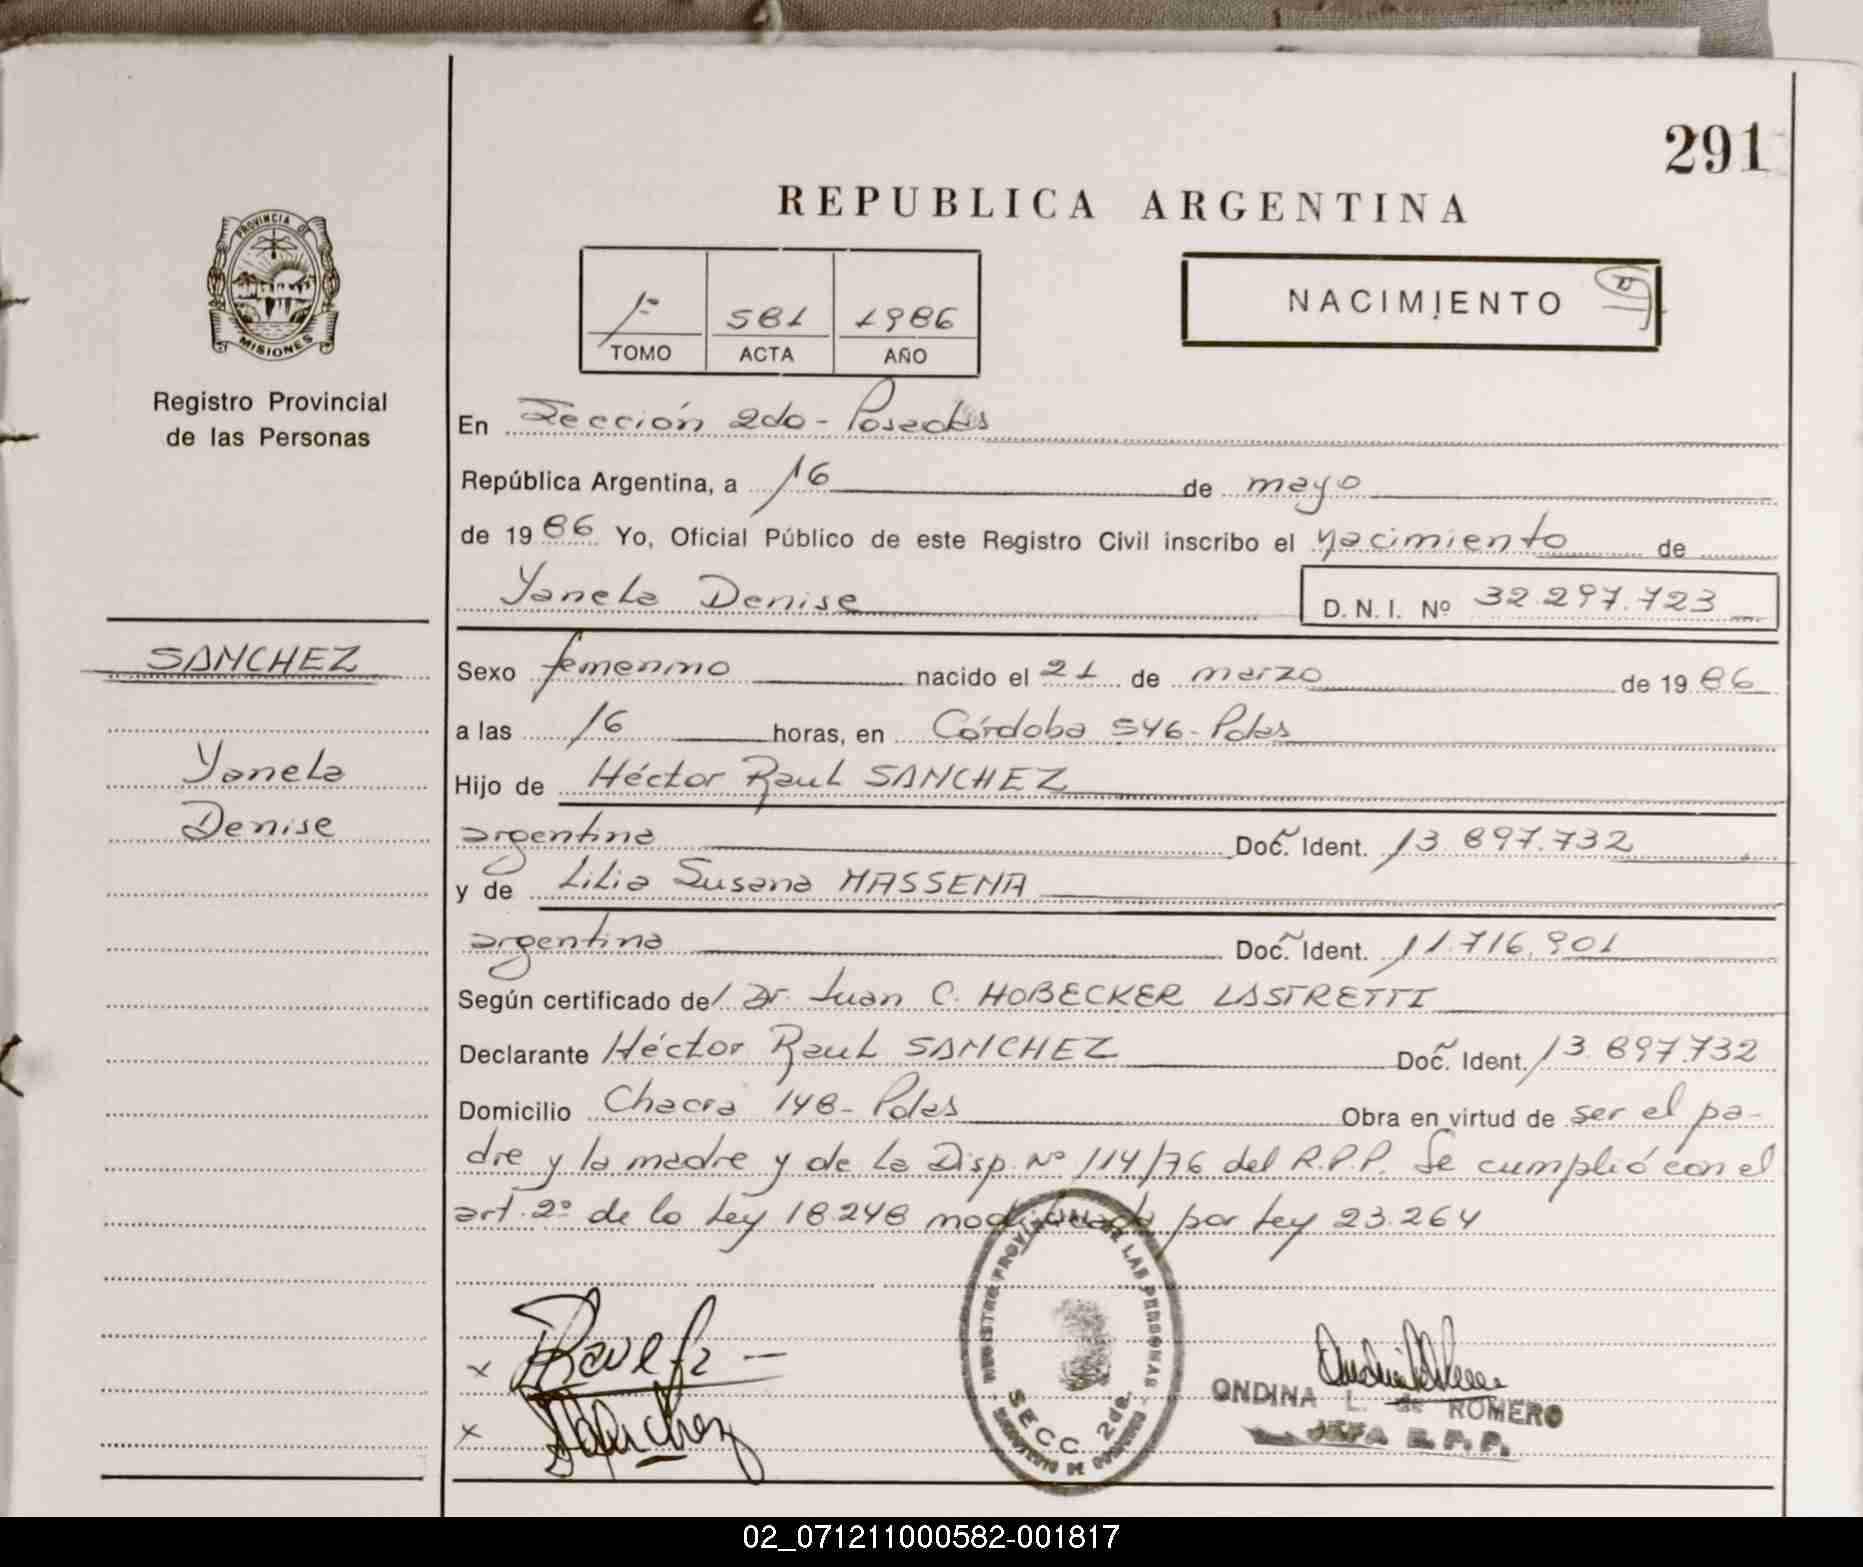 291
REPUBLICA ARGENTINA
PROVINCIA DE
MISIONES
Registro Provincial
de las Personas
1º 581 1986
TOMO ACTA AÑO
NACIMIENTO
En Sección 2da - Posadas
República Argentina, a 16 de mayo
de 1986 Yo, Oficial Público de este Registro Civil inscribo el nacimiento de
Yanela Denise D.N.I. Nº 32.297.723
SANCHEZ
Yanela
Denise
Sexo femenino nacido el 21 de marzo de 1986
a las 16 horas, en Córdoba 546 - Pdas
Hijo de Héctor Raul SANCHEZ
argentina Doc. Ident. 13.897.732
y de Lilia Susana MASSENA
argentina Doc. Ident. 11.716.901
Según certificado del Dr. Juan C. HOBECKER LASTRETTI
Declarante Héctor Raul SANCHEZ Doc. Ident. 13.897.732
Domicilio Chacra 148 - Pdas Obra en virtud de ser el pa-
dre y la madre y de la Disp. Nº 114/76 del R.P.P. Se cumplió con el
art. 2º de la Ley 18.248 modificada por Ley 23.264
REGISTRO PROVINCIAL DE LAS PERSONAS
SECC. 2da.
ONDINA L. de ROMERO
JEFA R.P.P.
02_071211000582-001817